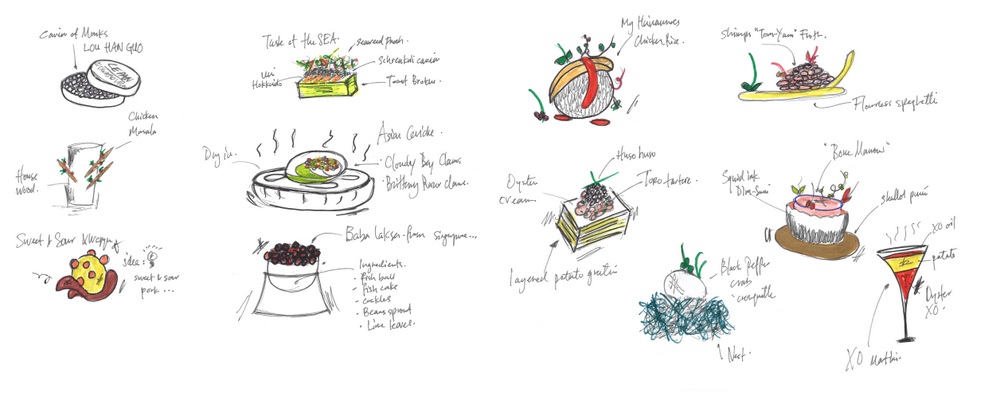 Caviar of Monks
LOU HAN GUO
Taste of the SEA.
seaweed
Schrenkii caviar
Uni
Hokkaido
Toast
My Hainanese
Chicken Rice.
Shrimps "Tom-Yam" Froth.
Flourless spaghetti
Chicken
Masala
House
wood.
Dry ice.
Asian Ceviche.
Cloudy Bay Clams
Brittany Razor clams.
Oyster
cream
Toro tartare.
Layered potato gratin
"Bone Marrow"
Squid ink
Dim-Sum
shallot purée
Sweet & Sour
idea:
sweet & sour
pork ...
Baba laksa-from Singapore...
Ingredients.
- Fish ball
- Fish cake
- Cockles
- Beans sprout
- Lime leaves.
Black Pepper
crab
croquette
Nest.
XO oil
potato
Oyster
XO.
XO Martini.